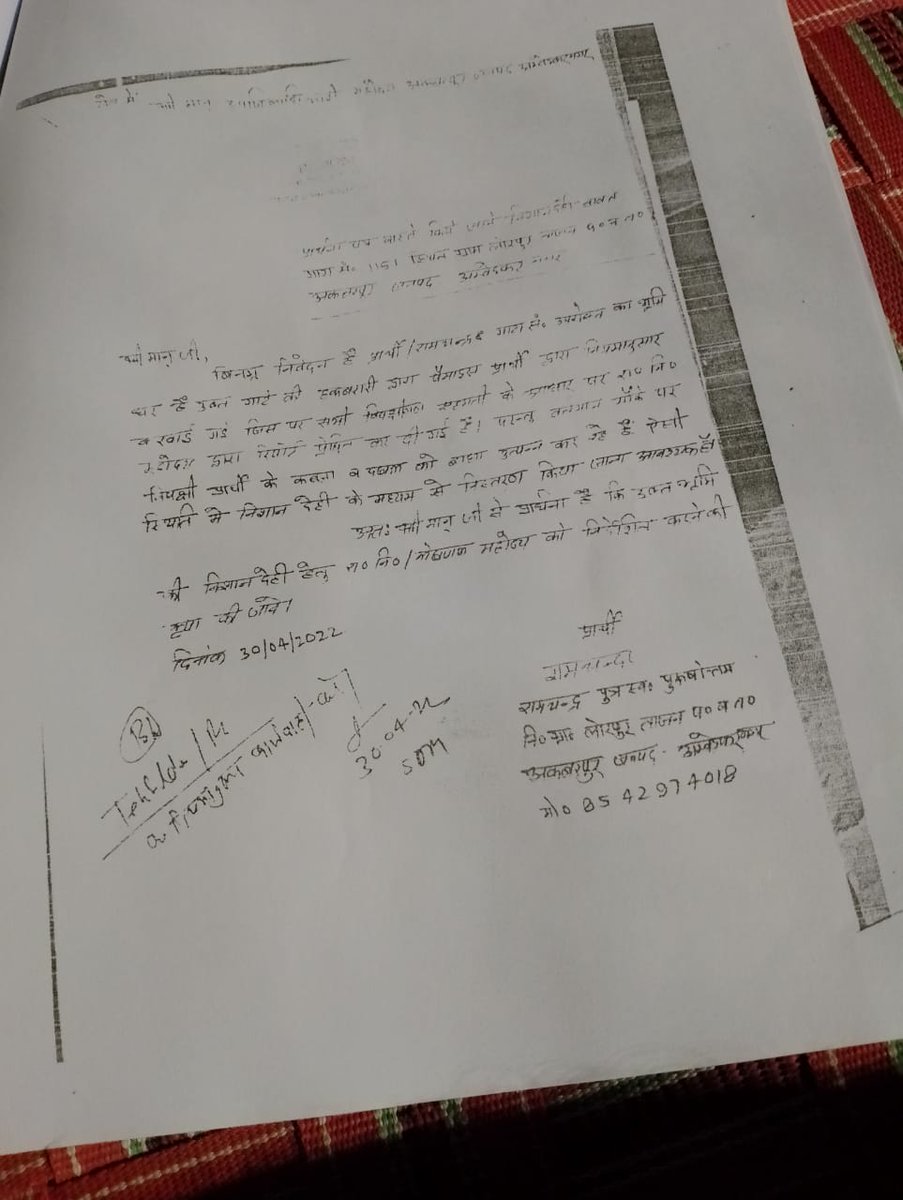 सेवा में श्री मान उपजिलाधिकारी महोदय अकबरपुर जनपद अम्बेडकरनगर
प्रार्थना पत्र वास्ते किये जाने निशानदेही बावत
गाटा सं० 1151 स्थित ग्राम लोरपुर ताजन प० व त०
अकबरपुर जनपद अम्बेडकर नगर
श्री मान् जी,
विनम्र निवेदन है प्रार्थी / रामचन्द्र गाटा सं० उपरोक्त का भूमि
धर है उक्त गाटे की हकबरारी द्वारा पैमाइस प्रार्थी द्वारा नियमानुसार
करवाई गई जिस पर सभी सहमती के आधार पर रा० नि०
महोदय द्वारा रिपोर्ट प्रेषित कर दी गई है। परन्तु वर्तमान मौके पर
विपक्षी प्रार्थी के कब्जा व दखल को बाधा उत्पन्न कर रहे हैं ऐसी
स्थिति में निशान देही के माध्यम से निस्तारण किया जाना आवश्यक है
अतः श्री मान् जी से प्रार्थना है कि उक्त भूमि
की निशान देही हेतु रा० नि० / महोदय को निर्देशित करने की
कृपा की जावे।
दिनांक 30/04/2022
प्रार्थी
रामचन्दर
रामचन्द्र पुत्र स्व० पुरूषोत्तम
नि० ग्रा० लोरपुर ताजन प० व त०
अकबरपुर जनपद - अम्बेडकरनगर
मो० 8542974018
कार्यवाही करें
30-04-22
SDM